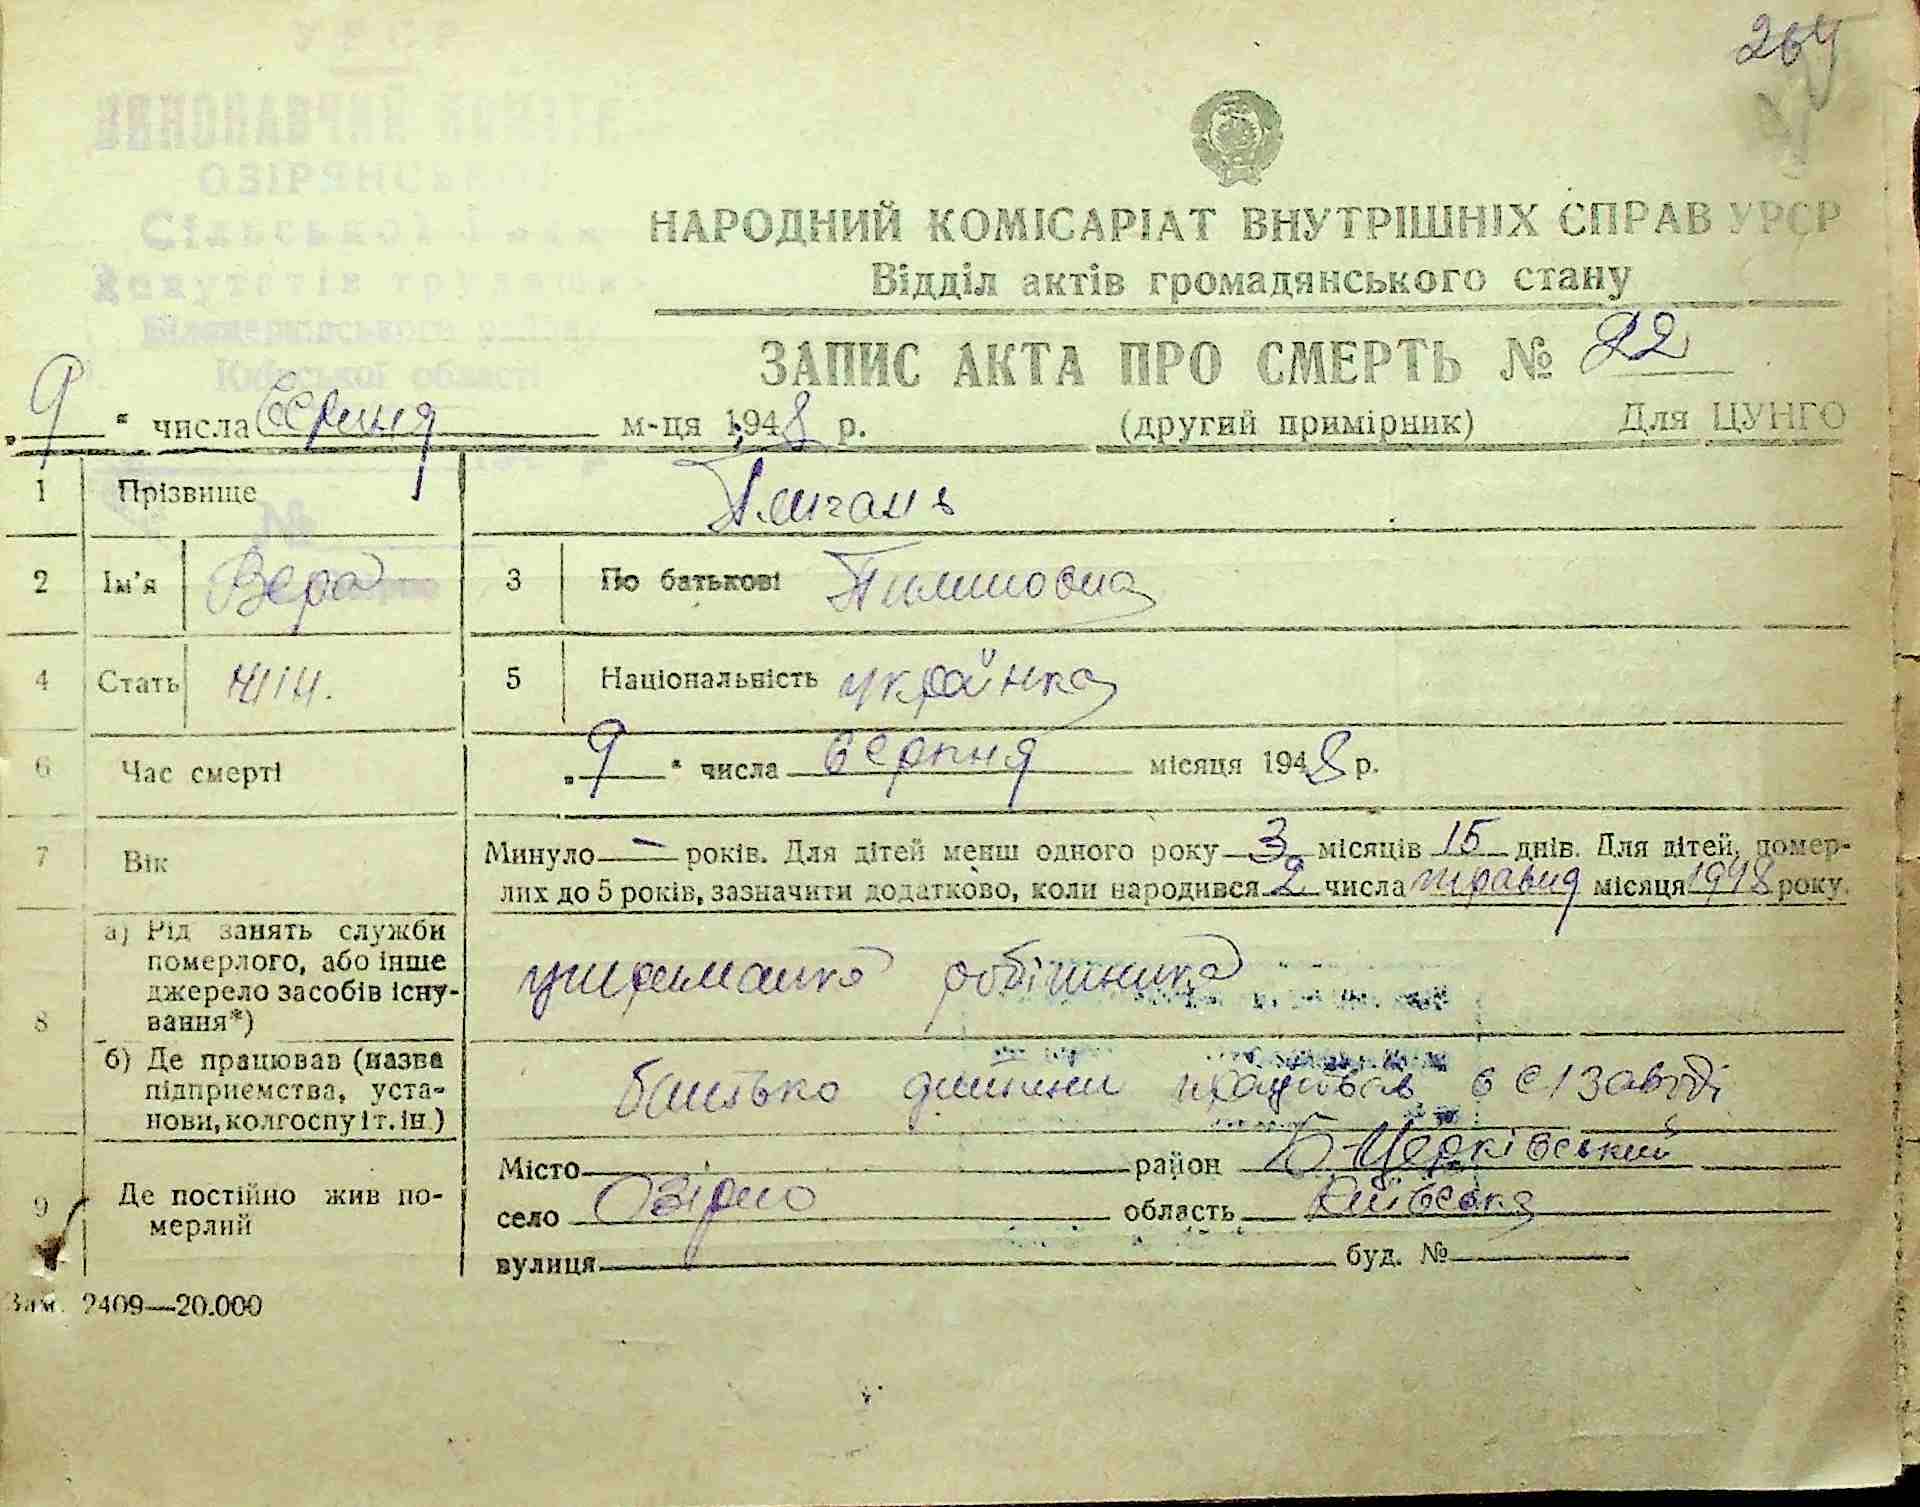 264
УРСР
ВИКОНАВЧИЙ КОМІТЕТ
ОЗІРЯНСЬКОЇ
Сільської Ради
Депутатів трудящих
Білоцерківського району
Київської області
№
НАРОДНИЙ КОМІСАРІАТ ВНУТРІШНІХ СПРАВ УРСР
Відділ актів громадянського стану
ЗАПИС АКТА ПРО СМЕРТЬ № 22
„9“ числа Серпня м-ця 1948 р. (другий примірник) Для ЦУНГО
1 Прізвище
2 Ім'я Вера 3 По батькові
4 Стать жін. 5 Національність українка
6 Час смерті „9“ числа серпня місяця 1948 р.
7 Вік Минуло — років. Для дітей менш одного року 3 місяців 15 днів. Для дітей, помер-
лих до 5 років, зазначити додатково, коли народився 2 числа травня місяця 1948 року.
8 а) Рід занять служби
померлого, або інше
джерело засобів існу-
вання*)
утриманка робітника
б) Де працював (назва
підприємства, уста-
нови, колгоспу і т. ін.)
батько дитини працював в с/заводі
9 Де постійно жив по-
мерлий
Місто район Б-Церківський
село Озірно область Київська
вулиця буд. №
Зам. 2409—20.000